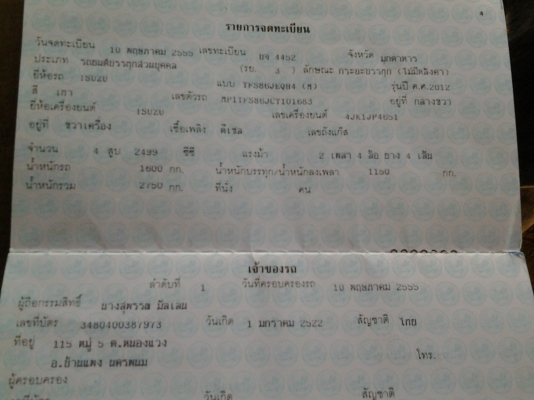 4
รายการจดทะเบียน
วันจดทะเบียน 10 พฤษภาคม 2555 เลขทะเบียน 4452 จังหวัด มุกดาหาร
ประเภท รถยนต์บรรทุกส่วนบุคคล (รย. 3 ) ลักษณะ กระบะบรรทุก (ไม่มีหลังคา)
ยี่ห้อรถ ISUZU แบบ (M) รุ่นปี ค.ศ.2012
สี เทา เลขตัวรถ อยู่ที่ กลางขวา
ยี่ห้อเครื่องยนต์ ISUZU เลขเครื่องยนต์
อยู่ที่ ขวาเครื่อง เชื้อเพลิง ดีเซล เลขถังแก๊ส
จำนวน 4 สูบ 2499 ซีซี แรงม้า 2 เพลา 4 ล้อ ยาง 4 เส้น
น้ำหนักรถ 1600 กก. น้ำหนักบรรทุก/น้ำหนักลงเพลา 1150 กก.
น้ำหนักรวม 2750 กก. ที่นั่ง คน
เจ้าของรถ
ลำดับที่ 1 วันที่ครอบครองรถ 10 พฤษภาคม 2555
ผู้ถือกรรมสิทธิ์
เลขที่บัตร 3480400387973 วันเกิด 1 มกราคม 2522 สัญชาติ ไทย
ที่อยู่ 115 หมู่ 5 ต.หนองแวง โทร.
อ.บ้านแพง นครพนม
ผู้ครอบครอง
วันเกิด สัญชาติ